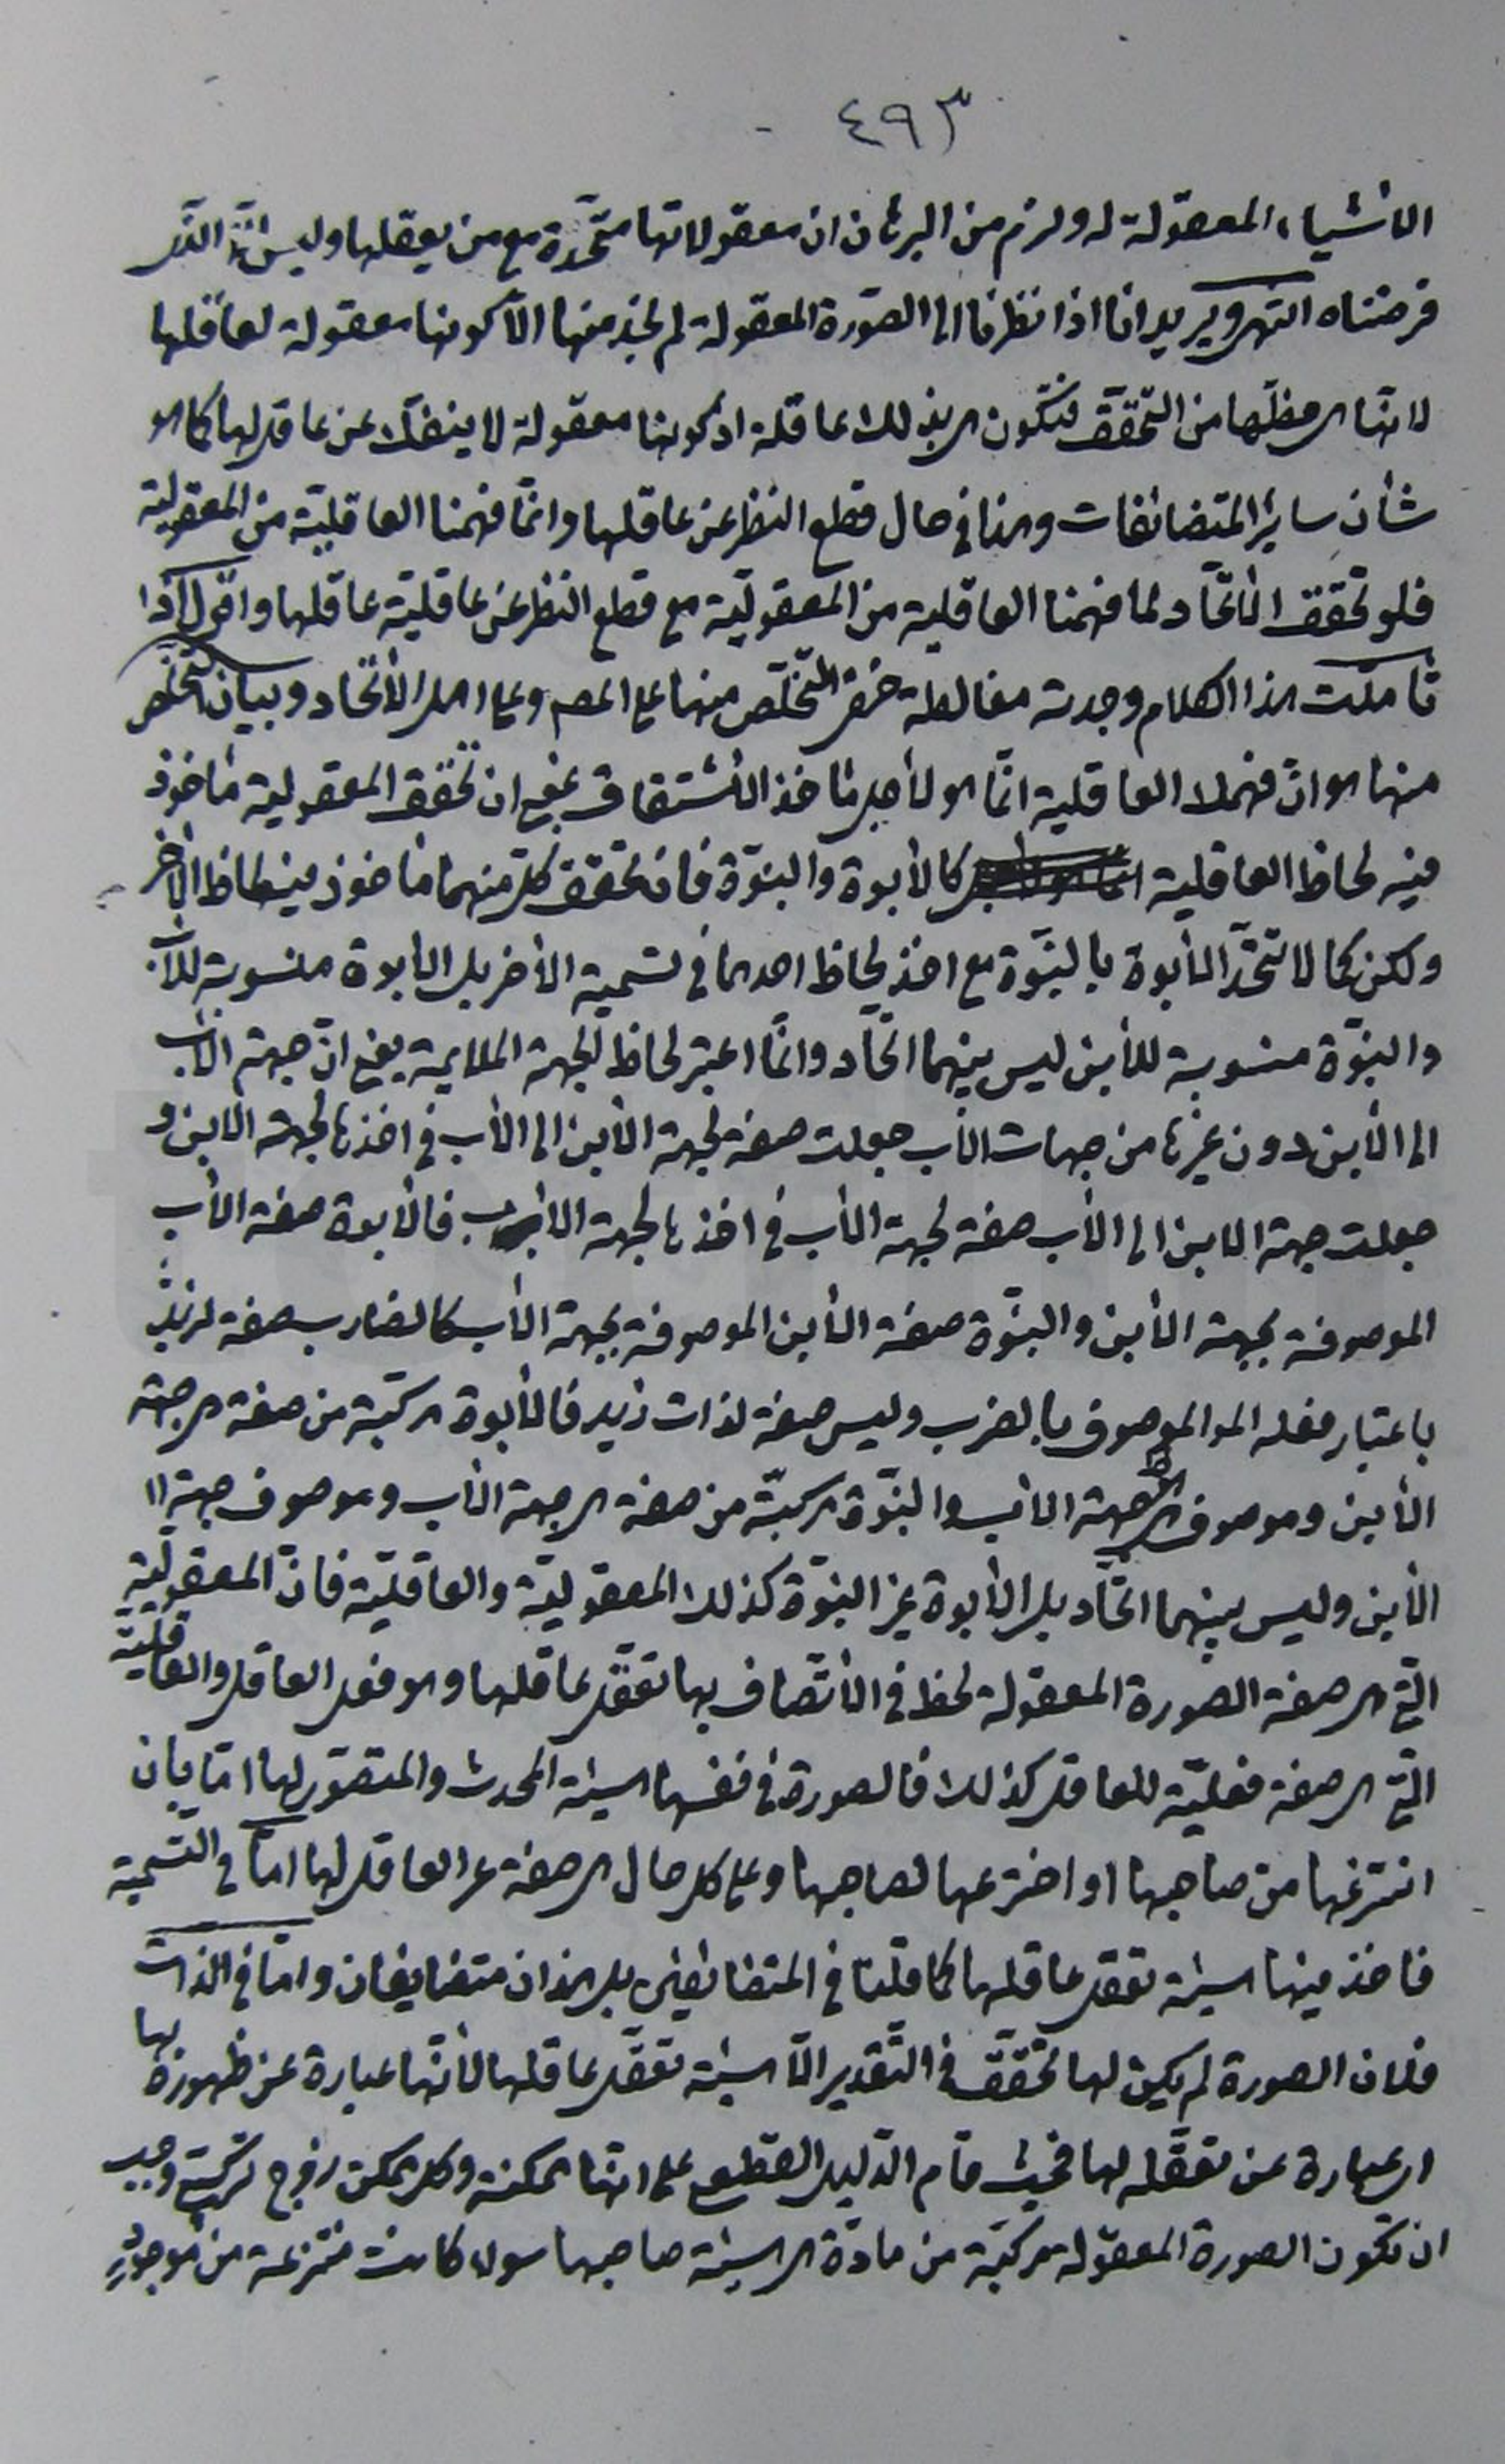 ٤٩٣
الأشياء المعقولة له ولزم من البرهان ان معقولاتها متحّدة مع من يعقلها وليس الّا الذّى
فرضناه انتهى ويريد انا اذا نظرنا الى الصّورة المعقولة لم نجد منها الّا كونها معقولة لعاقلها
لانّها هى حظّها من التّحقّق فتكون هى بذلك عاقلة اذ كونها معقولة لا ينفكّ عن عاقل لها كما هو
شأن ساير المتضائفات وهذا فى حال قطع النظر عن عاقلها وانّما فهمنا العاقليّة من المعقوليّة
فلو تحقّق الاتّحاد لما فهمنا العاقلية من المعقوليّة مع قطع النظر عن عاقليّة عاقلها واقول اذا
تأمّلت هذا الكلام وجدته مغالطة خفى التّخلّص منها على المصـ وعلى اهل الأتّحاد وبيان التخلّص
منها هو انّ فهمك العاقلية انّما هو لأجل مأخذ الأشتقاق بمعنى ان تحقّق المعقولية مأخوذ
فيه لحاظ العاقلية كالأبوة والبنوّة فان تحقّق كلّ منهما مأخوذ فيه لحاظ الأخر
ولكن كما لا تتّحد الأبوة بالبنوّة مع اخذ لحاظ احدهما فى تسمية الأخر بل الأبوة منسوبة للأب
والبنوّة منسوبة للأبن ليس بينهما اتّحاد وانّما اعتبر لحاظ الجهة الملايمة يعنى انّ جهة الأب
الى الأبن دون غيرها من جهات الأب جعلت صفة لجهة الأبن الى الأب فى اخذها لجهة الابن و
جعلت جهة الابن الى الأب صفة لجهة الأب فى اخذها لجهة الاب فالأبوة صفة الأب
الموصوفة بجهة الأبن والبنوّة صفة الأبن الموصوفة بجهة الأب كالضارب صفة لزيد
باعتبار فعله الموصوف بالضرب وليس صفة لذات زيد فالأبوة مركّبة من صفة هى جهة
الأبن وموصوف هو جهة الأب والبنوّة مركبّة من صفة هى جهة الأب وموصوف جهة
الأبن وليس بينهما اتّحاد بل الأبوة غير البنوّة كذلك المعقوليّة والعاقليّة فانّ المعقوليّة
التى هى صفة الصورة المعقولة لحظ فى الأتّصاف بها تعقّل عاقلها وهو فعل العاقل والعاقلية
التى هى صفة فعليّة للعاقل كذلك فالصورة فى نفسها هيئة المحدث والمتصوّر لها امّا بان
انتزعها من صاحبها او اخترعها لصاحبها وعلى كل حال هى صفة غير العاقل لها امّا فى التّسمية
فاخذ فيها هيئة تعقل عاقلها كما قلنا فى المتضائفين بل هذان متضايفان وامّا فى الذّات
فلان الصورة لم يكن لها تحقّق فى التّقدير الّا هيئة تعقّل عاقلها لأنّها عبارة عن ظهوره بها
اى عبارة عن تعقّله لها فحيث قام الدّليل القطعى على انها ممكنة وكل ممكن زوج تركيبى وجب
ان تكون الصورة المعقولة مركبّة من مادّة هى هيئة صاحبها سواء كانت منتزعة من موجود